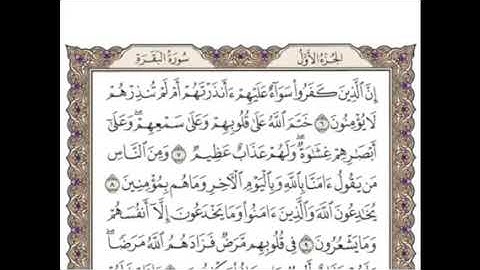 الجُزْءُ الأَوَّلُ
سُورَةُ البَقَرَةِ
إِنَّ ٱلَّذِينَ كَفَرُوا۟ سَوَآءٌ عَلَيْهِمْ ءَأَنذَرْتَهُمْ أَمْ لَمْ تُنذِرْهُمْ
لَا يُؤْمِنُونَ ٦ خَتَمَ ٱللَّهُ عَلَىٰ قُلُوبِهِمْ وَعَلَىٰ سَمْعِهِمْ ۖ وَعَلَىٰٓ
أَبْصَٰرِهِمْ غِشَٰوَةٌ ۖ وَلَهُمْ عَذَابٌ عَظِيمٌ ٧ وَمِنَ ٱلنَّاسِ
مَن يَقُولُ ءَامَنَّا بِٱللَّهِ وَبِٱلْيَوْمِ ٱلْـَٔاخِرِ وَمَا هُم بِمُؤْمِنِينَ ٨
يُخَٰدِعُونَ ٱللَّهَ وَٱلَّذِينَ ءَامَنُوا۟ وَمَا يَخْدَعُونَ إِلَّآ أَنفُسَهُمْ
وَمَا يَشْعُرُونَ ٩ فِى قُلُوبِهِم مَّرَضٌ فَزَادَهُمُ ٱللَّهُ مَرَضًا ۖ